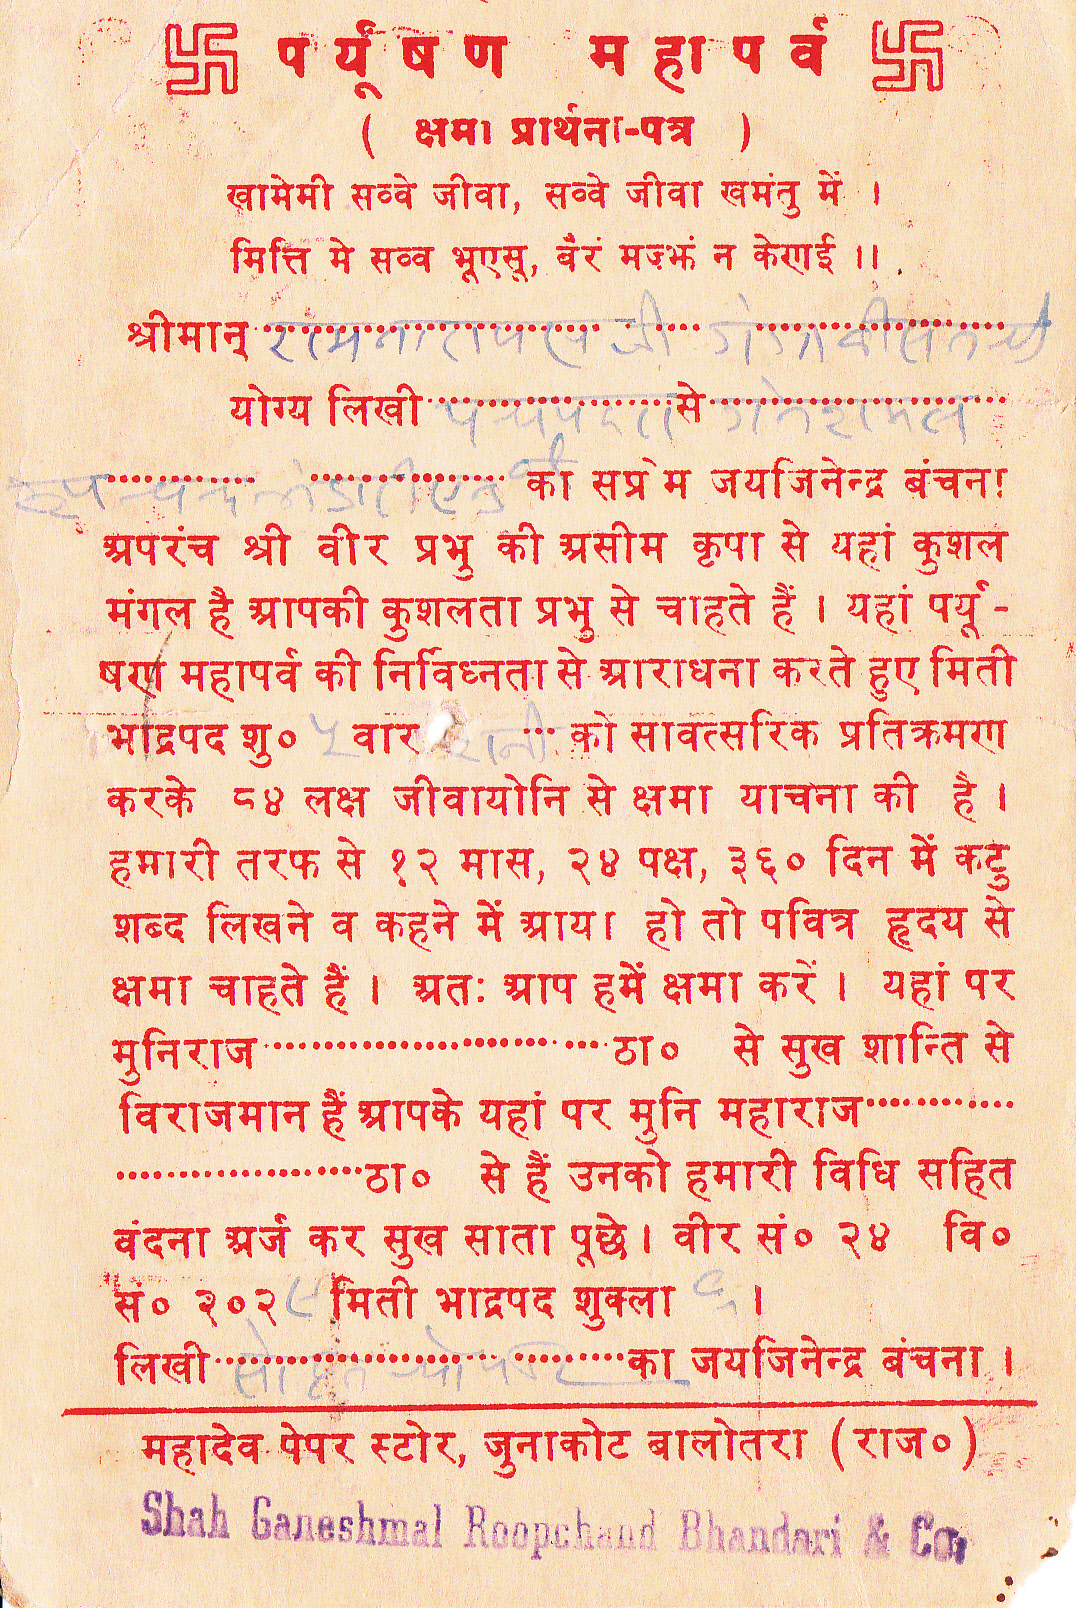 पर्यूषण महापर्व
( क्षमा प्रार्थना-पत्र )
खामेमी सव्वे जीवा, सव्वे जीवा खमंतु में ।
मित्ति मे सव्व भूएसू, वैरं मज्झं न केणई ।।
श्रीमान्
योग्य लिखी से
का सप्रेम जयजिनेन्द्र बंचना
अपरंच श्री वीर प्रभु की असीम कृपा से यहां कुशल
मंगल है आपकी कुशलता प्रभु से चाहते हैं । यहां पर्यू-
षण महापर्व की निर्विघ्नता से आराधना करते हुए मिती
भाद्रपद शु० ५ वार शनी को सावत्सरिक प्रतिक्रमण
करके ८४ लक्ष जीवायोनि से क्षमा याचना की है ।
हमारी तरफ से १२ मास, २४ पक्ष, ३६० दिन में कटु
शब्द लिखने व कहने में आया हो तो पवित्र हृदय से
क्षमा चाहते हैं । अतः आप हमें क्षमा करें । यहां पर
मुनिराज ठा० से सुख शान्ति से
विराजमान हैं आपके यहां पर मुनि महाराज
ठा० से हैं उनको हमारी विधि सहित
वंदना अर्ज कर सुख साता पूछे । वीर सं० २४ वि०
सं० २०२ मिती भाद्रपद शुक्ला ।
लिखी का जयजिनेन्द्र बंचना ।
महादेव पेपर स्टोर, जुनाकोट बालोतरा (राज०)
Shah Ganeshmal Roopchand Bhandari & Co.